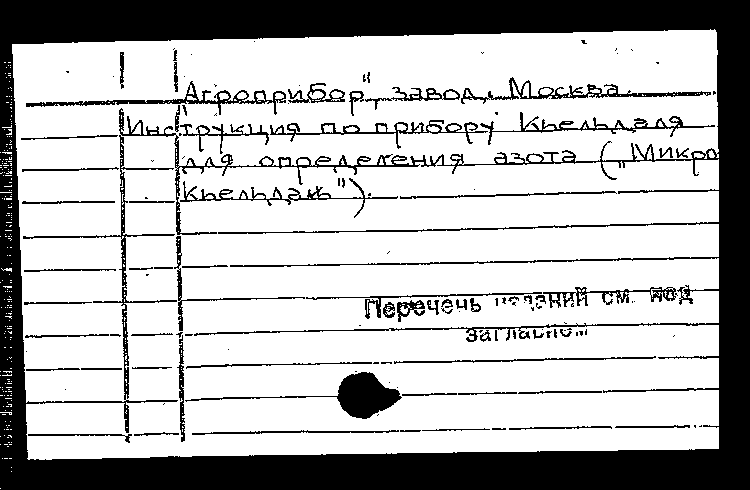 "Агроприбор", завод. Москва.
Инструкция по прибору Кьельдаля
для определения азота („Микро
Кьельдаль").
Перечень изданий см. под
заглавием